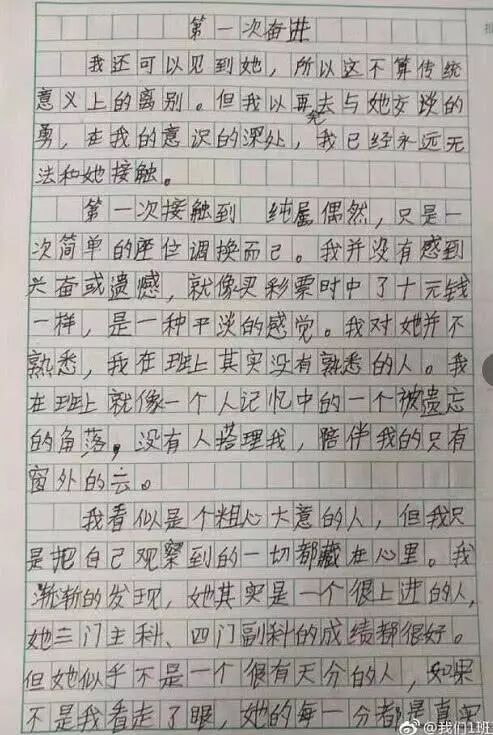 第一次奋进
我还可以见到她，所以这不算传统
意义上的离别。但我以再无去与她交谈的
勇，在我的意识的深处，我已经永远无
法和她接触。
第一次接触到 纯属偶然，只是一
次简单的座位调换而已。我并没有感到
兴奋或遗憾，就像买彩票时中了十元钱
一样，是一种平淡的感觉。我对她并不
熟悉，我在班上其实没有熟悉的人。我
在班上就像一个人记忆中的一个被遗忘
的角落，没有人搭理我，陪伴我的只有
窗外的云。
我看似是个粗心大意的人，但我只
是把自己观察到的一切都藏在心里。我
渐渐的发现，她其实是一个很上进的人，
她三门主科、四门副科的成绩都很好。
但她似乎不是一个很有天分的人，如果
不是我看走了眼，她的每一分都是真实
@我们1班